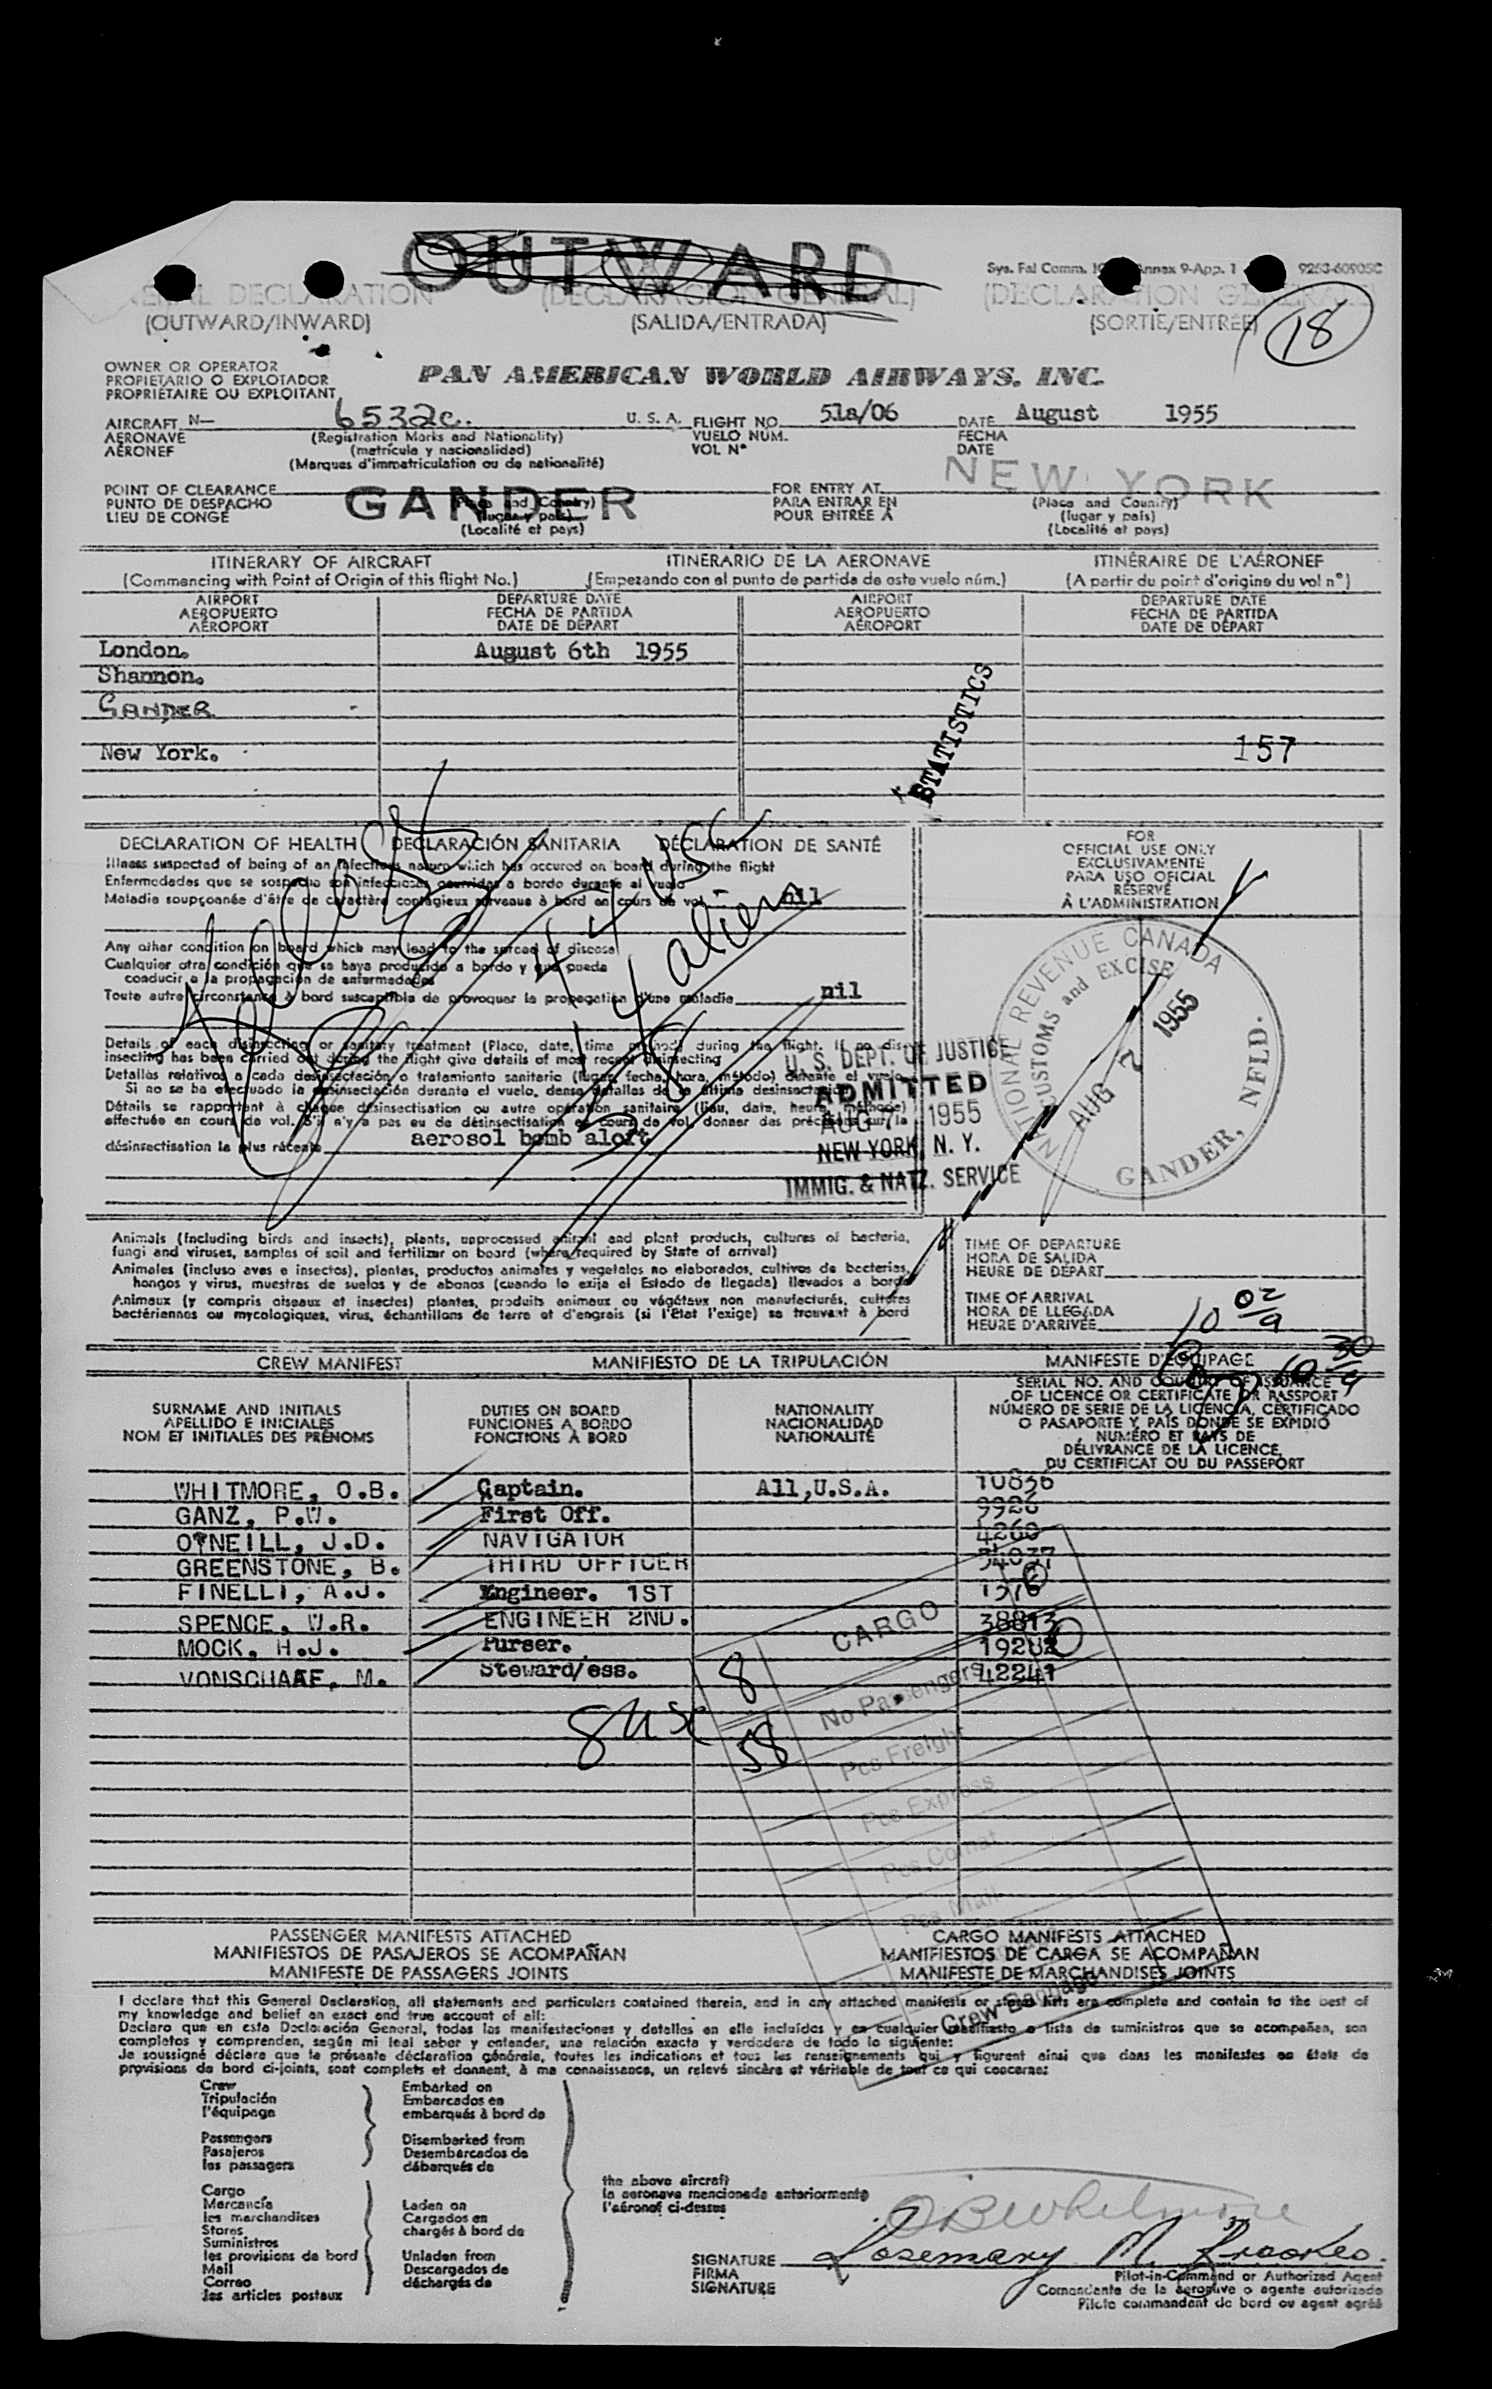 OUTWARD
Sys. Fal Comm. Annex 9-App. 1 9253-60905C
DECLARATION (DECLARACIÓN GENERAL) (DECLARATION GENERALE)
(OUTWARD/INWARD) (SALIDA/ENTRADA) (SORTIE/ENTRÉE)
18
OWNER OR OPERATOR
PROPIETARIO O EXPLOTADOR
PROPRIÉTAIRE OU EXPLOITANT
PAN AMERICAN WORLD AIRWAYS, INC.
AIRCRAFT N— 6532c. U. S. A. FLIGHT NO. 51a/06 DATE August 1955
AERONAVE (Registration Marks and Nationality) VUELO NUM. FECHA
AÉRONEF (matrícula y nacionalidad) VOL N° DATE
(Marques d'immatriculation ou de nationalité)
POINT OF CLEARANCE GANDER FOR ENTRY AT NEW YORK
PUNTO DE DESPACHO and Country) PARA ENTRAR EN (Place and Country)
LIEU DE CONGÉ (lugar y país) POUR ENTRÉE À (lugar y país)
(Localité et pays) (Localité et pays)
ITINERARY OF AIRCRAFT ITINERARIO DE LA AERONAVE ITINÉRAIRE DE L'AÉRONEF
(Commencing with Point of Origin of this flight No.) (Empezando con el punto de partida de este vuelo núm.) (A partir du point d'origine du vol n°)
AIRPORT DEPARTURE DATE AIRPORT DEPARTURE DATE
AEROPUERTO FECHA DE PARTIDA AEROPUERTO FECHA DE PARTIDA
AÉROPORT DATE DE DÉPART AÉROPORT DATE DE DÉPART
London. August 6th 1955
Shannon.
GANDER
New York. 157
STATISTICS
DECLARATION OF HEALTH DECLARACIÓN SANITARIA DÉCLARATION DE SANTÉ
Illness suspected of being of an infectious nature which has occured on board during the flight
Enfermedades que se sospecha son infecciosas ocurridas a bordo durante el vuelo
Maladie soupçonnée d'être de caractère contagieux survenue à bord en cours de vol nil
Any other condition on board which may lead to the spread of disease
Cualquier otra condición que se haya producido a bordo y que pueda
conducir a la propagación de enfermedades
Toute autre circonstance à bord susceptible de provoquer la propagation d'une maladie nil
4 aliens
Details of each disinsecting or sanitary treatment (Place, date, time method) during the flight. If no disinsecting has been carried out during the flight give details of most recent disinsecting
Detalles relativos a cada desinsectación o tratamiento sanitario (lugar, fecha, hora, método) durante el vuelo.
Si no se ha efectuado la desinsectación durante el vuelo, dense detalles de la última desinsectación
Détails se rapportant à chaque désinsectisation ou autre opération sanitaire (lieu, date, heure, méthode)
effectuée en cours de vol. S'il n'y a pas eu de désinsectisation en cours de vol, donner des précisions sur la
désinsectisation la plus récente aerosol bomb aloft
U. S. DEPT. OF JUSTICE
ADMITTED
AUG 7 1955
NEW YORK, N. Y.
IMMIG. & NATZ. SERVICE
FOR
OFFICIAL USE ONLY
EXCLUSIVAMENTE
PARA USO OFICIAL
RÉSERVÉ
À L'ADMINISTRATION
NATIONAL REVENUE CANADA
CUSTOMS and EXCISE
AUG 7 1955
GANDER, NFLD.
Animals (Including birds and insects), plants, unprocessed animal and plant products, cultures of bacteria,
fungi and viruses, samples of soil and fertilizer on board (where required by State of arrival)
Animales (incluso aves e insectos), plantas, productos animales y vegetales no elaborados, cultivos de bacterias,
hongos y virus, muestras de suelos y de abonos (cuando lo exija el Estado de llegada) llevados a bordo
Animaux (y compris oiseaux et insectes) plantes, produits animaux ou végétaux non manufacturés, cultures
bactériennes ou mycologiques, virus, échantillons de terre et d'engrais (si l'État l'exige) se trouvant à bord
TIME OF DEPARTURE
HORA DE SALIDA
HEURE DE DÉPART
TIME OF ARRIVAL
HORA DE LLEGADA
HEURE D'ARRIVÉE 10 02/a
10 30/a
CREW MANIFEST MANIFIESTO DE LA TRIPULACIÓN MANIFESTE D'ÉQUIPAGE
SURNAME AND INITIALS DUTIES ON BOARD NATIONALITY SERIAL NO. AND COUNTRY OF ISSUANCE
APELLIDO E INICIALES FUNCIONES A BORDO NACIONALIDAD OF LICENCE OR CERTIFICATE OR PASSPORT
NOM ET INITIALES DES PRÉNOMS FONCTIONS À BORD NATIONALITÉ NÚMERO DE SERIE DE LA LICENCIA, CERTIFICADO
O PASAPORTE Y PAÍS DONDE SE EXPIDIÓ
NUMÉRO ET PAYS DE
DÉLIVRANCE DE LA LICENCE,
DU CERTIFICAT OU DU PASSEPORT
WHITMORE, O.B. Captain. All,U.S.A. 10836
GANZ, P.W. First Off. 9926
O'NEILL, J.D. NAVIGATOR 4260
GREENSTONE, B. THIRD OFFICER 34037
FINELLI, A.J. Engineer. 1ST 1376
SPENCE, W.R. ENGINEER 2ND. 38813
MOCK, H.J. Purser. 19282
VONSCHAAF, M. Steward/ess. 42241
8 USC
8
58
CARGO
No Passengers
Pcs Freight
Pcs Express
Pcs Comat
Pcs Mail
Crew Baggage
PASSENGER MANIFESTS ATTACHED CARGO MANIFESTS ATTACHED
MANIFIESTOS DE PASAJEROS SE ACOMPAÑAN MANIFIESTOS DE CARGA SE ACOMPAÑAN
MANIFESTE DE PASSAGERS JOINTS MANIFESTE DE MARCHANDISES JOINTS
I declare that this General Declaration, all statements and particulars contained therein, and in any attached manifests or stores lists are complete and contain to the best of
my knowledge and belief an exact and true account of all:
Declaro que en esta Declaración General, todas las manifestaciones y detalles en ella incluidos y en cualquier manifiesto o lista de suministros que se acompañen, son
completos y comprenden, según mi leal saber y entender, una relación exacta y verdadera de todo lo siguiente:
Je soussigné déclare que la présente déclaration générale, toutes les indications et tous les renseignements qui y figurent ainsi que dans les manifestes ou états de
provisions de bord ci-joints, sont complets et donnent, à ma connaissance, un relevé sincère et véritable de tout ce qui concerne:
Crew Embarked on
Tripulación Embarcados en
l'équipage embarqués à bord de
Passengers Disembarked from
Pasajeros Desembarcados de
les passagers débarqués de
the above aircraft
la aeronave mencionada anteriormente
l'aéronef ci-dessus
Cargo
Mercancía Laden on
les marchandises Cargados en
Stores chargés à bord de
Suministros
les provisions de bord Unladen from
Mail Descargados de
Correo déchargés de
les articles postaux
OBWhitmore
SIGNATURE Rosemary M. Brookes.
FIRMA Pilot-in-Command or Authorized Agent
SIGNATURE Comandante de la aeronave o agente autorizado
Pilote commandant de bord ou agent agréé